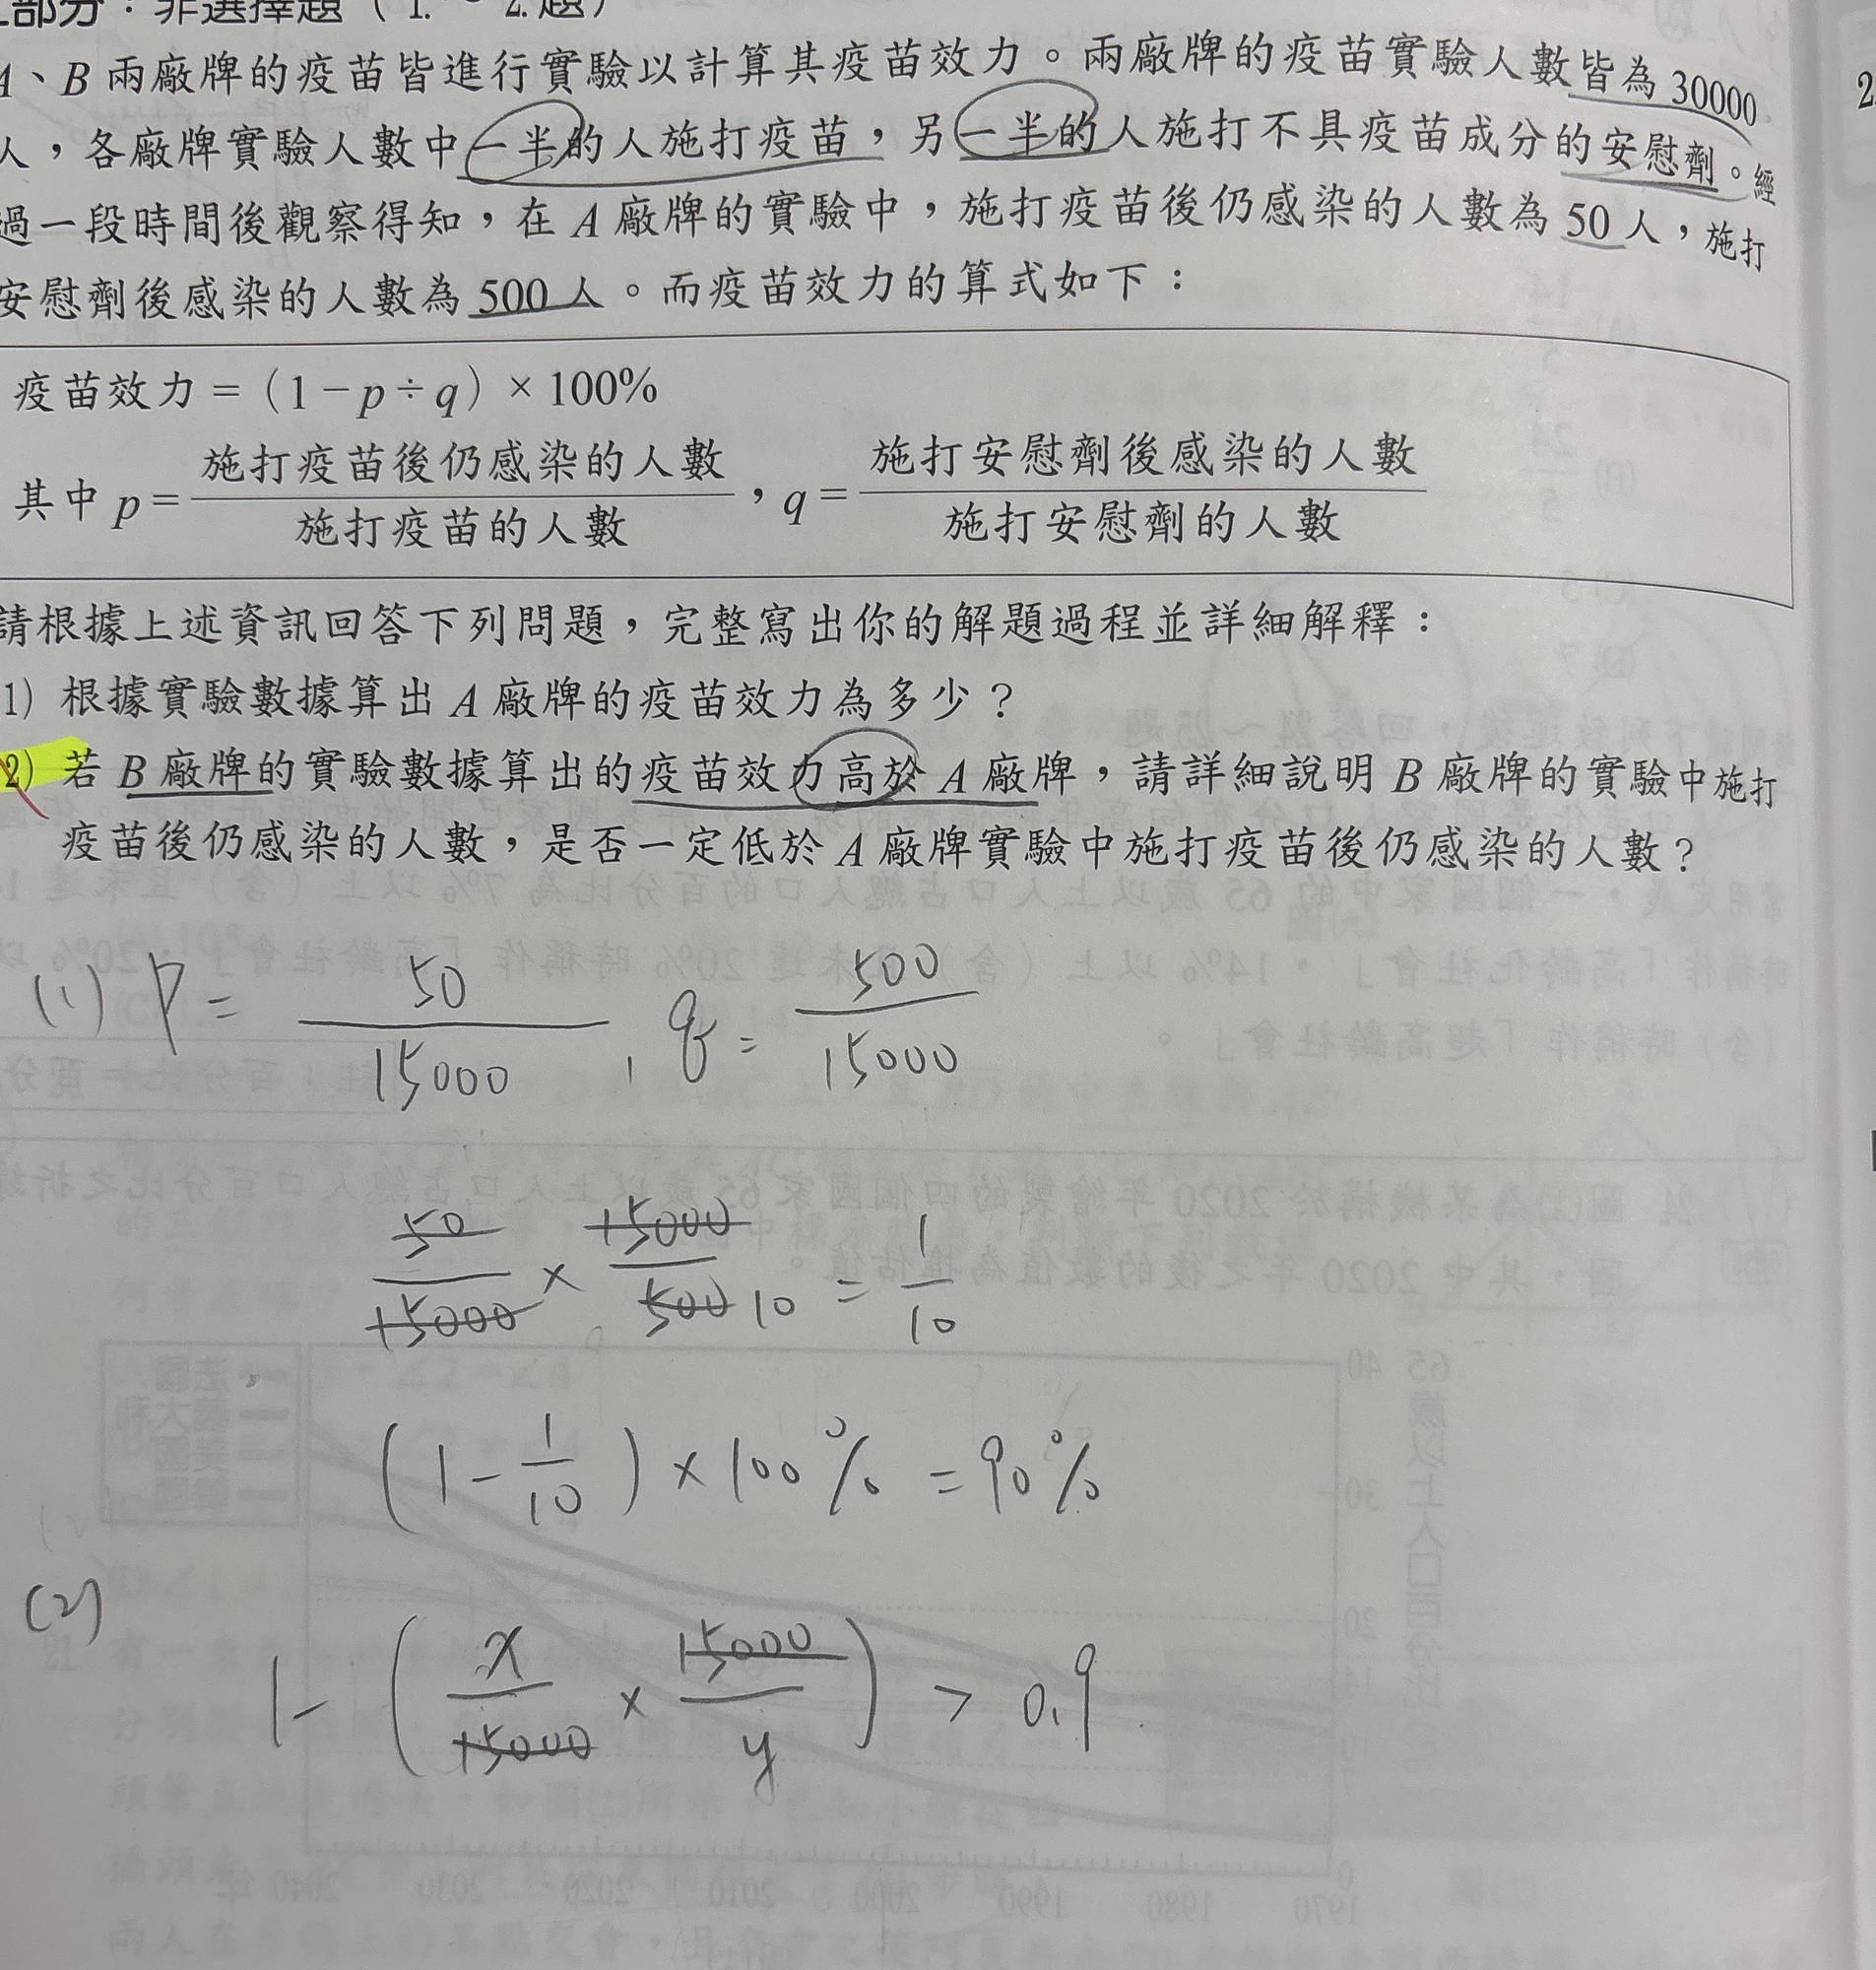 部分：非選擇題（1.～2.題）
A、B兩廠牌的疫苗皆進行實驗以計算其疫苗效力。兩廠牌的疫苗實驗人數皆為30000
人，各廠牌實驗人數中一半的人施打疫苗，另一半的人施打不具疫苗成分的安慰劑。經
過一段時間後觀察得知，在A廠牌的實驗中，施打疫苗後仍感染的人數為50人，施打
安慰劑後感染的人數為500人。而疫苗效力的算式如下：
疫苗效力＝（1－p÷q）×100%
其中p＝施打疫苗後仍感染的人數/施打疫苗的人數，q＝施打安慰劑後感染的人數/施打安慰劑的人數
請根據上述資訊回答下列問題，完整寫出你的解題過程並詳細解釋：
1) 根據實驗數據算出A廠牌的疫苗效力為多少？
2) 若B廠牌的實驗數據算出的疫苗效力高於A廠牌，請詳細說明B廠牌的實驗中施打
疫苗後仍感染的人數，是否一定低於A廠牌實驗中施打疫苗後仍感染的人數？
(1) P = 50/15000 , q = 500/15000
50/15000 × 15000/500 10 = 1/10
(1 - 1/10) × 100% = 90%
(2)
1 - (x/15000 × 15000/y) > 0.9